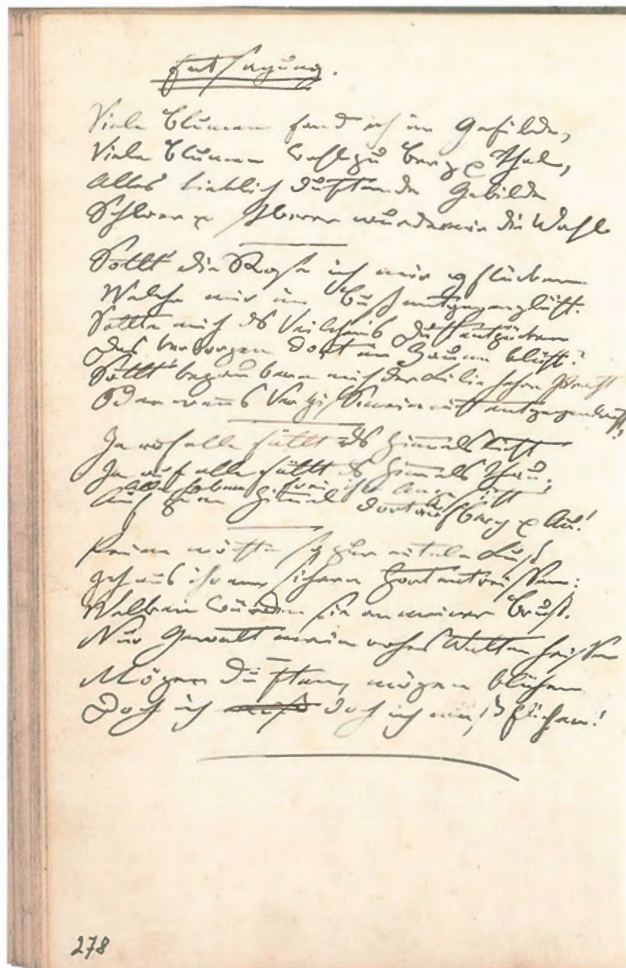 Entsagung.
Viele Blumen fand ich im Gefilde,
Viele Blumen wohl zu Berg & Thal,
Alles lieblich duftende Gebilde
Schwer & schwerer wurde mir die Wahl
Sollt' die Rose ich mir pflücken
Welche mir im entgegenglüht.
Sollte mich ds Veilchens Duft entzücken
Das verborgen dort am Zaune blüht?
Sollt' bezaubern mich der Lilie hehre Pracht
Oder wenns Vergißmeinnicht entgegenlacht?
Ja auf alle fällt ds Himmels Licht
Ja auf alle fällt ds Himmels Thau,
Alle haben frei ihr Angesicht
Auf zum Himmel dort auf Berg & Au!
Keine möcht' ich zur eitlen Lust
ihrem sichern Hort entreissen;
Welken würden sie an meiner Brust.
Nur Gewalt mein rohes Walten heissen
Mögen duften, mögen blühen
Doch ich doch ich muß fliehen!
278